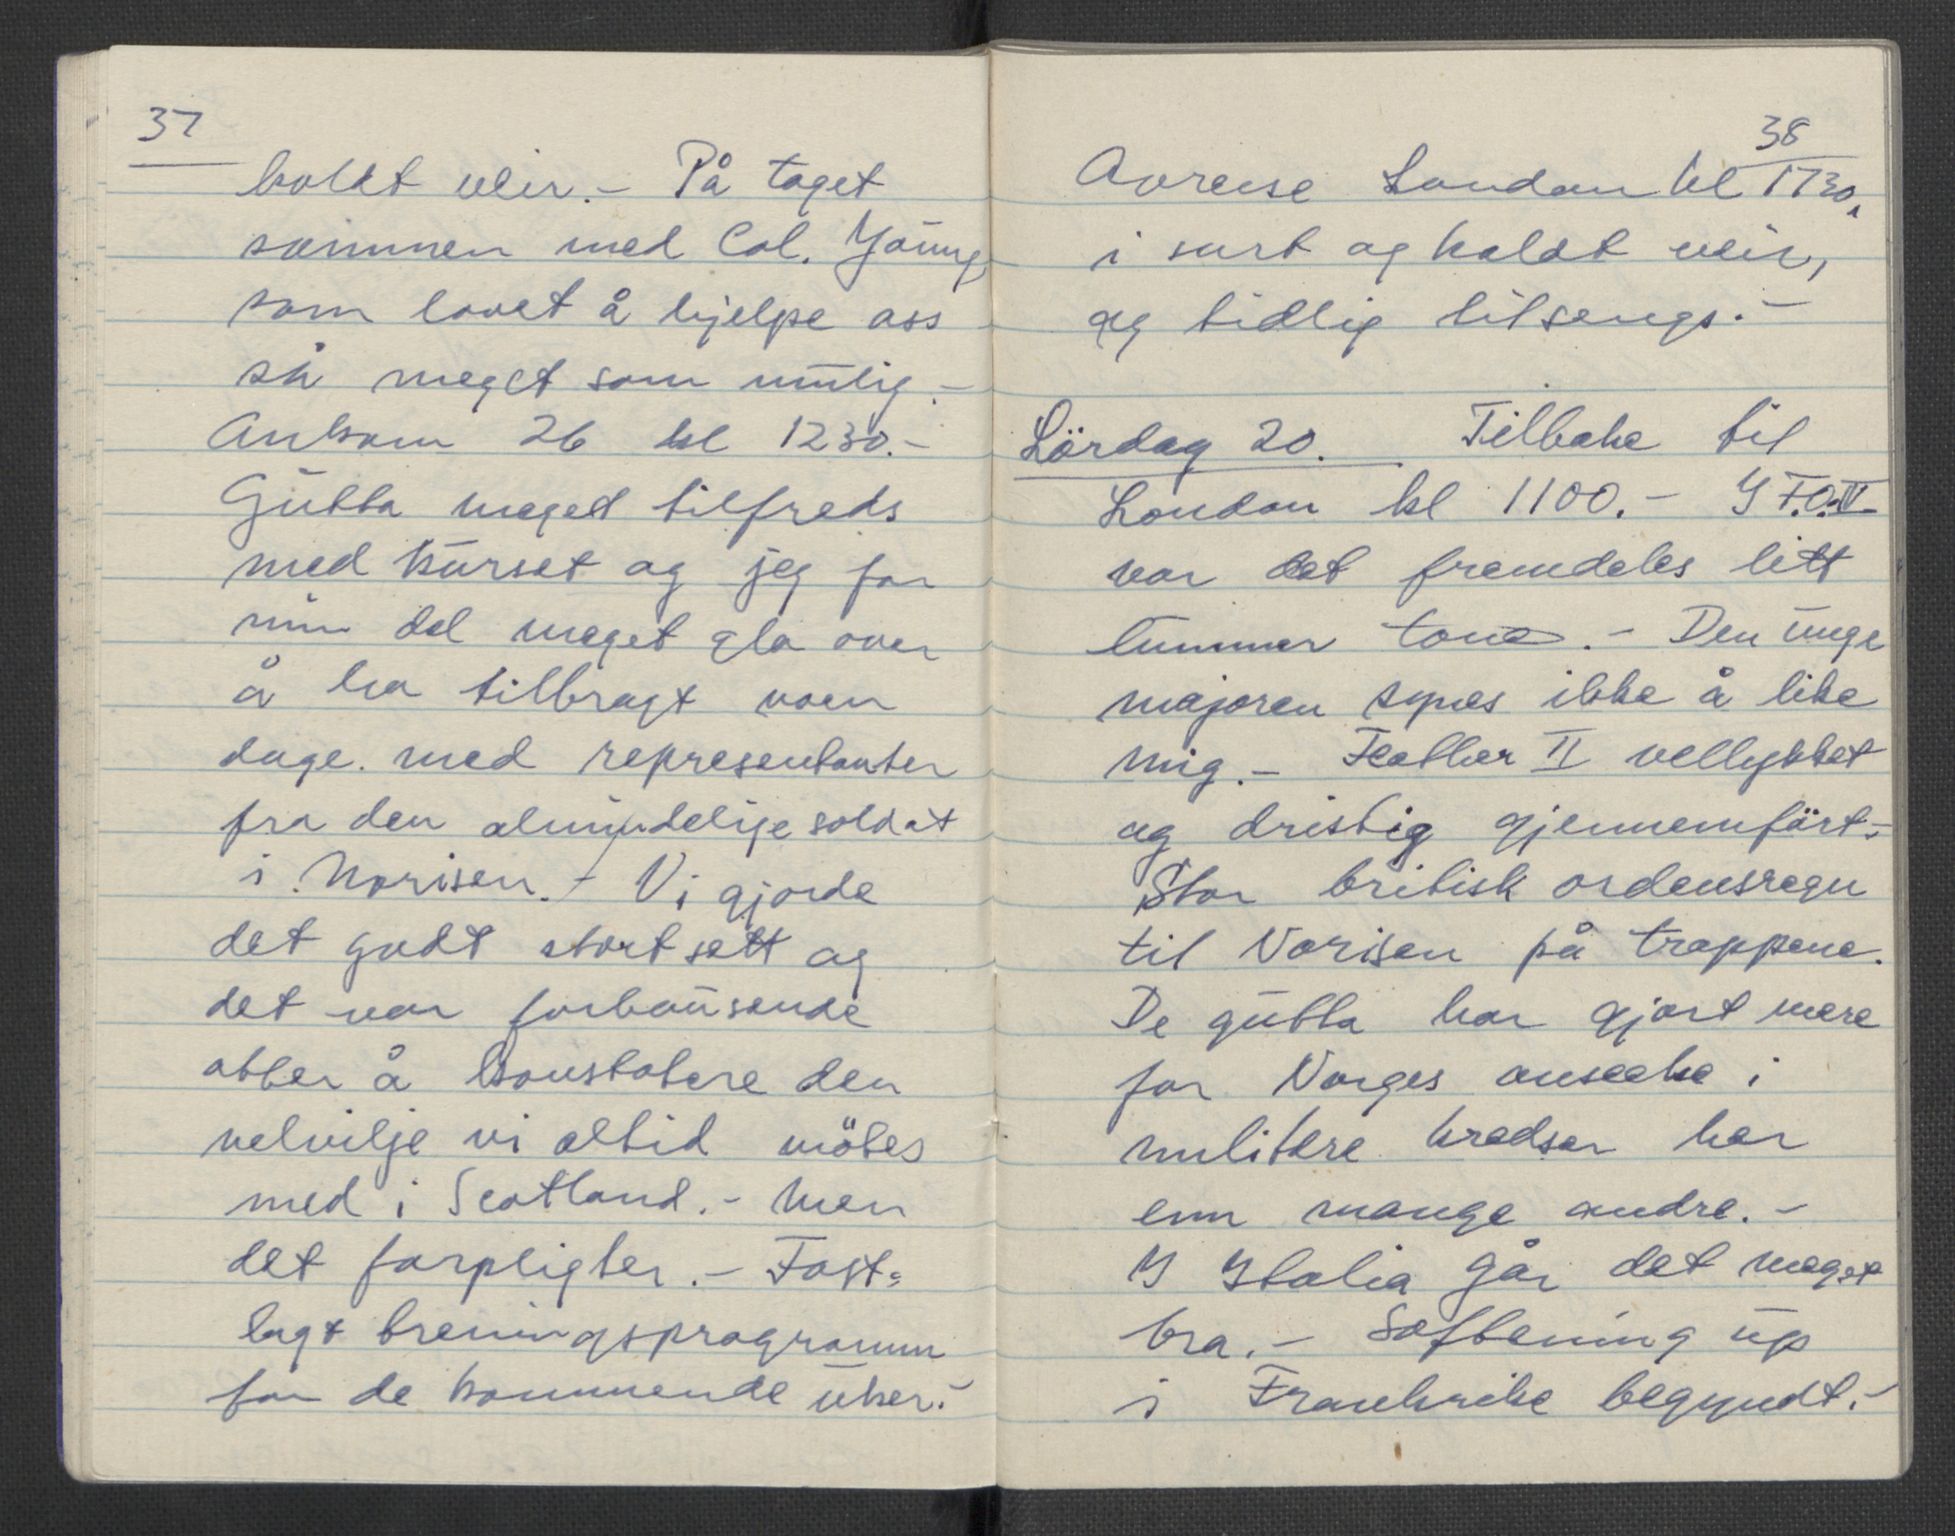 37
koldt veir. - På toget
sammen med Col. Young
som lovet å hjelpe oss
så meget som mulig. -
Ankom 26 kl 1230. -
Gutta meget tilfreds
med kurset og jeg for
min del meget gla over
å ha tilbragt noen
dage. med representanter
fra den almindelige soldat
i Norisen. - Vi gjorde
det godt stort sett og
det var forbausende
atter å konstatere den
velvilje vi altid mötes
med i Scotland. - Men
det forpligter. - Fast=
lagt treningsprogramm
for de kommende uker. -
38
Avreise London kl 1730,
i surt og koldt veir,
og tidlig tilsengs. -
Lördag 20. Tilbake til
London kl 1100. - I F.O.IV
var det fremdeles litt
lummer tone. - Den unge
majoren synes ikke å like
mig. - Feather II vellykket
og dristig gjennemfört. -
Stor britisk ordensregn
til Norisen på trappene.
De gutta har gjort mere
for Norges anseelse i
militære kredser her
enn mange andre. -
I Italia går det meget
bra. - Softening up
i Frankrike begyndt. -